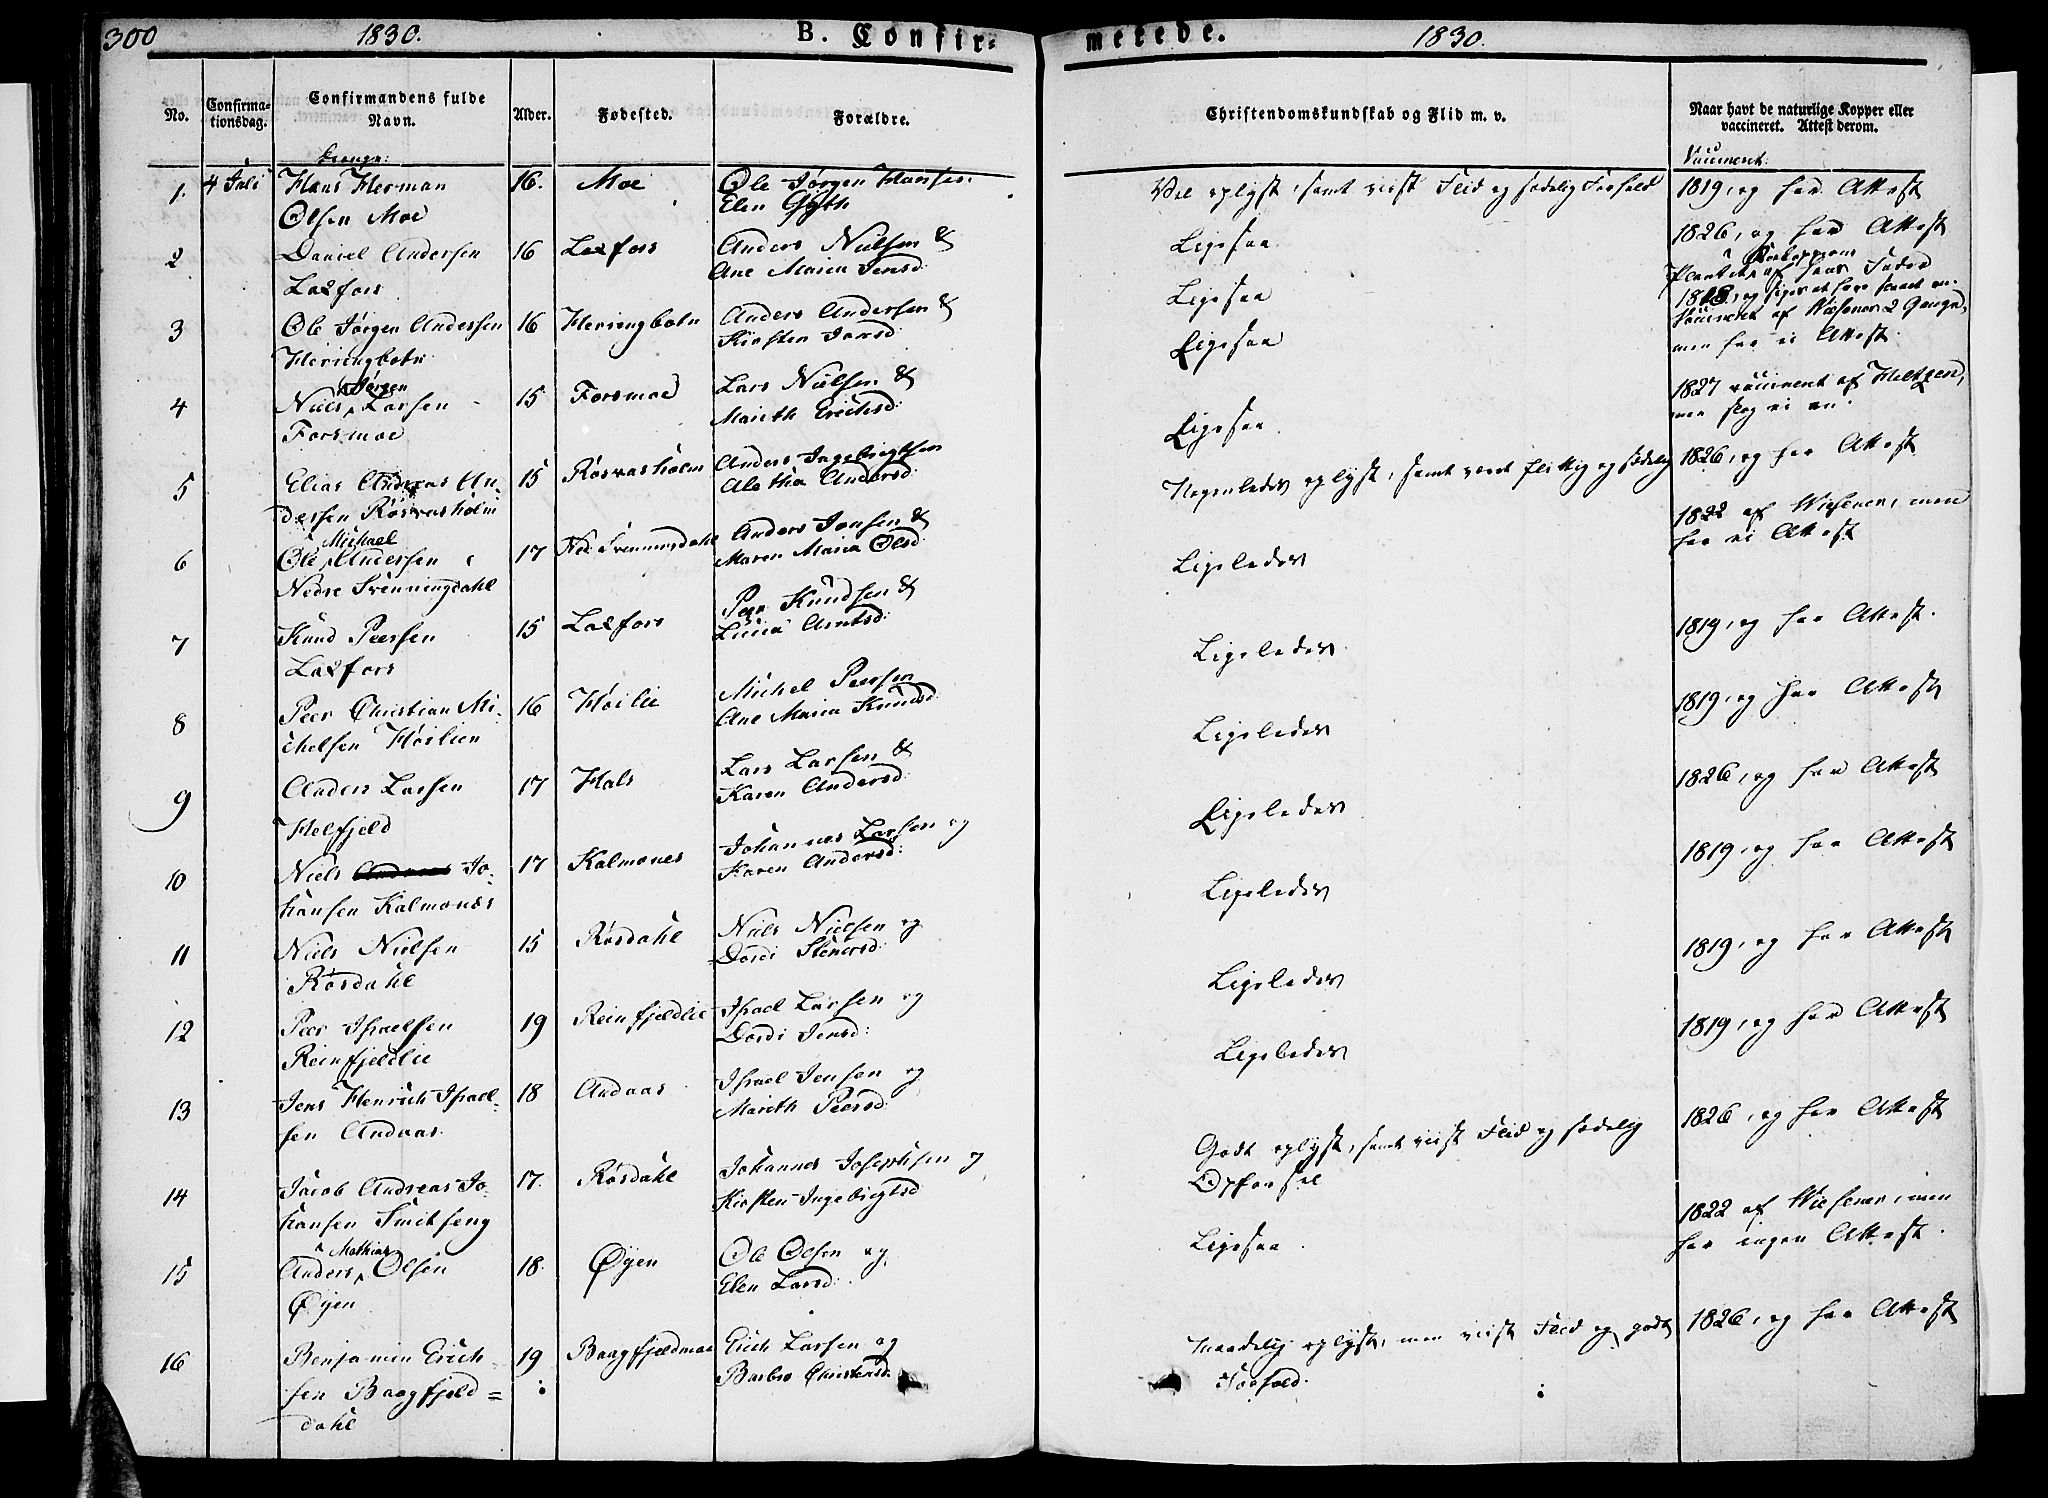 300 1830. B. Confir= merede. 1830.
No. Confirma-tionsdag. Confirmandens fulde Navn. Alder. Fødested. Forældre. Christendomskundskab og Flid m. v. Naar havt de naturlige Kopper eller vaccineret. Attest derom.
Drenge:
1. 4 Juli Hans Herman 16. Moe Ole Jørgen Hansen Vel oplyst, samt viist Flid og sædelig Forhold 1819, og har Attest
Olsen Moe Elen Gyth
2 Daniel Andersen 16 Laxfors Anders Nielsen & Ligesaa 1826, og har Attest
Laxfors Ane Maria Jensd:
3 Ole Jørgen Andersen 16 Heringbotn Anders Andersen & Ligesaa
Heringbotn Kirsten Jonsd: men har ei Attest.
4 Niels Jørgen Larsen 15 Forsmoe Lars Nielsen & Ligesaa 1827 vaccineret af Heltzen,
Forsmoe Mareth Erichsd: men slog ei an.
5 Elias Andreas An- 15 Røsvasholm Anders Ingebrigtsen Nogenledes oplyst, samt været flittig og sædelig 1826, og har Attest
dersen Røsvasholm Aletha Andersd:
6 Ole Michael Andersen 17 Ned: Svenningdahl Anders Jonsen & Ligeledes 1822 af Wiesener, men
Nedre Svenningdahl Maren Maria Olsd: har ei Attest
7 Knud Peersen 15 Laxfors Peer Knudsen & Ligeledes 1819, og har Attest.
Laxfors Lucia Arntsd:
8 Peer Christian Mi- 16 Høilie Michel Peersen Ligeledes 1819, og har Attest
chelsen Høilien Ane Maria Knudsd:
9 Anders Larsen 17 Hals Lars Larsen & Ligeledes 1826, og har Attest
Helfjeld Karen Andersd:
10 Niels Jo- 17 Kalmones Johannes Larsen og Ligeledes 1819, og har Attest
hansen Kalmones Karen Andersd:
11 Niels Nielsen 15 Røsdahl Niels Nielsen og Ligeledes 1819, og har Attest
Røsdahl Dordi Stenersd:
12 Peer Israelsen 19 Reinfjeldlie Israel Larsen og Ligeledes 1819, og har Attest
Reinfjeldlie Dordi Jensd:
13 Jens Henrich Israel- 18 Andaas Israel Jensen og Godt oplyst, samt viist Flid og sædelig 1826, og har Attest
sen Andaas Mareth Peersd: Opførsel
14 Jacob Andreas Jo- 17. Røsdahl Johannes Josephsen og Ligesaa. 1822 af Wiesener, men
hansen Smitseng Kirsten Ingebrigtsd har ingen Attest.
15 Anders Mathias Olsen 18. Øyen Ole Olsen og
Øyen Elen Larsd:
16 Benjamin Erich- 19 Baagfjeldmoe Erich Larsen og Maadelig oplyst, men viist Flid og godt 1826, og har Attest
sen Baagfjeld= Barbro Christensd: Forhold.
dahl